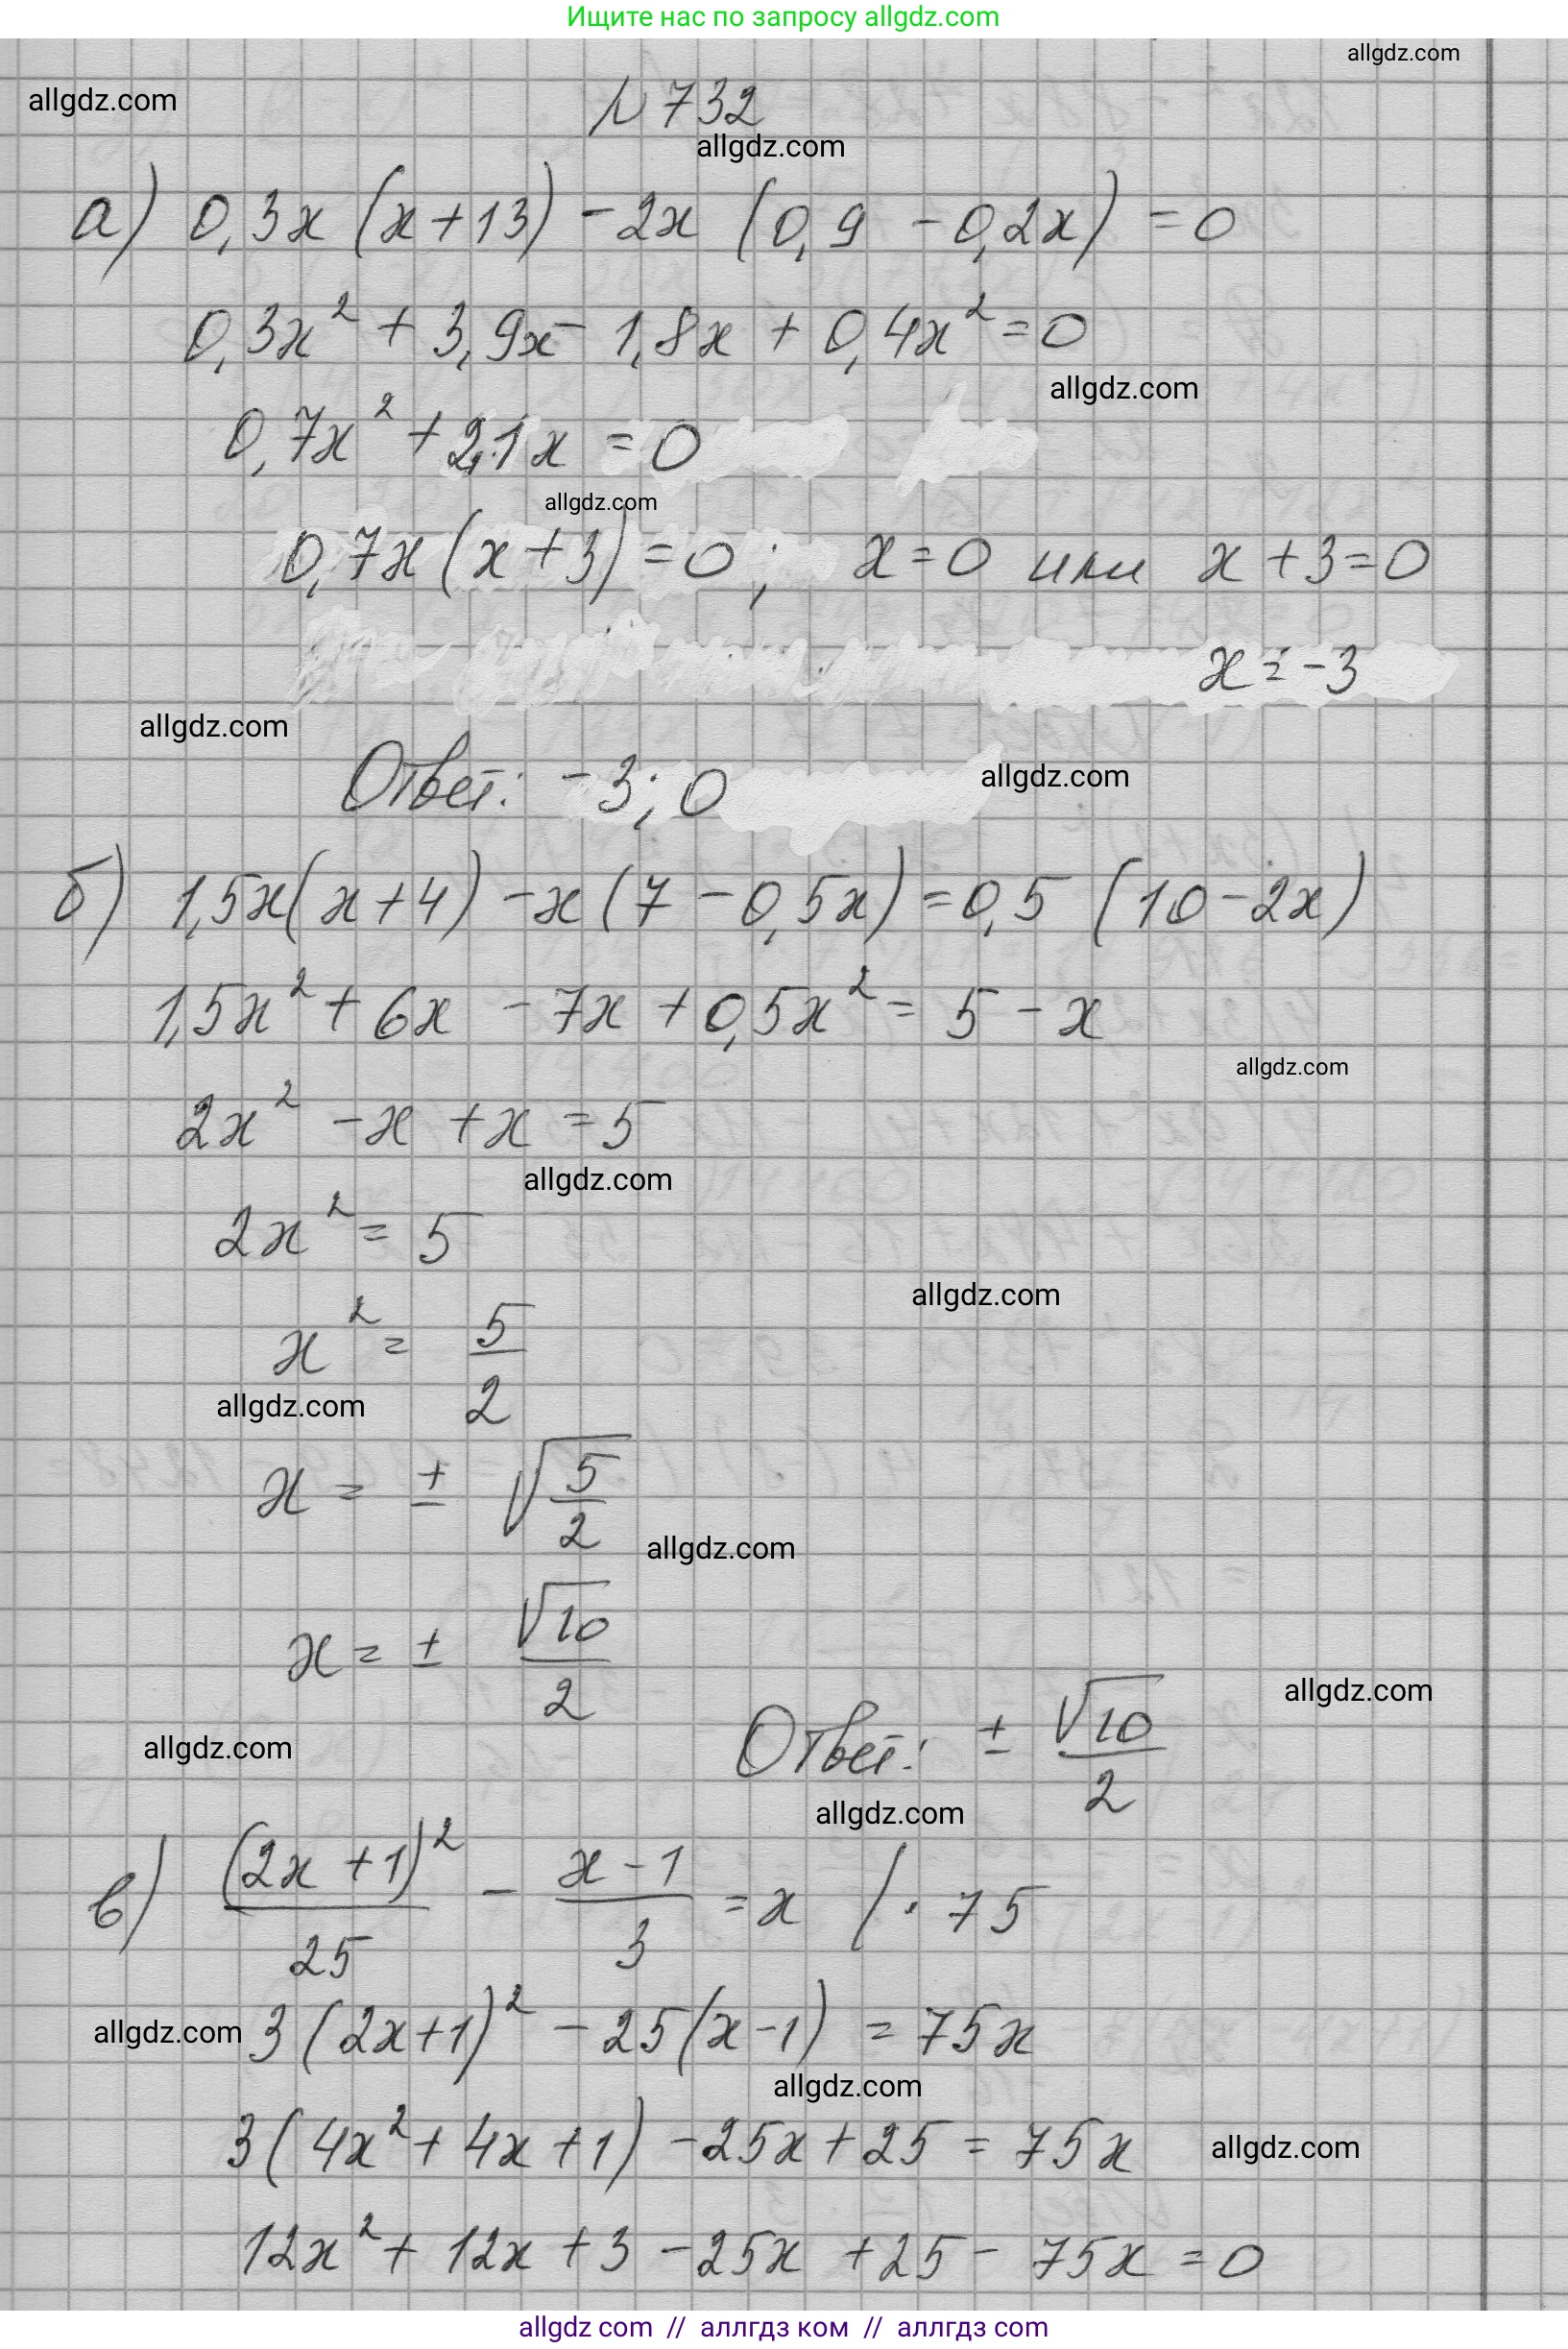 Ищите нас по запросу allgdz.com
allgdz.com
allgdz.com
№ 732
allgdz.com
а) 0,3x (x+13) - 2x (0,9 - 0,2x) = 0
0,3x² + 3,9x - 1,8x + 0,4x² = 0
allgdz.com
0,7x² + 2,1x = 0
allgdz.com
0,7x (x+3) = 0; x = 0 или x + 3 = 0
x = -3
allgdz.com
Ответ: -3; 0
allgdz.com
б) 1,5x(x+4) - x(7 - 0,5x) = 0,5 (10 - 2x)
1,5x² + 6x - 7x + 0,5x² = 5 - x
allgdz.com
2x² - x + x = 5
allgdz.com
2x² = 5
allgdz.com
x² = 5/2
allgdz.com
x = ± √(5/2)
allgdz.com
x = ± √10/2
allgdz.com
Ответ: ± √10/2
allgdz.com
allgdz.com
в) (2x+1)²/25 - (x-1)/3 = x / · 75
allgdz.com
3(2x+1)² - 25(x-1) = 75x
allgdz.com
3(4x² + 4x + 1) - 25x + 25 = 75x
allgdz.com
12x² + 12x + 3 - 25x + 25 - 75x = 0
allgdz com // аллгдз ком // аллгдз com